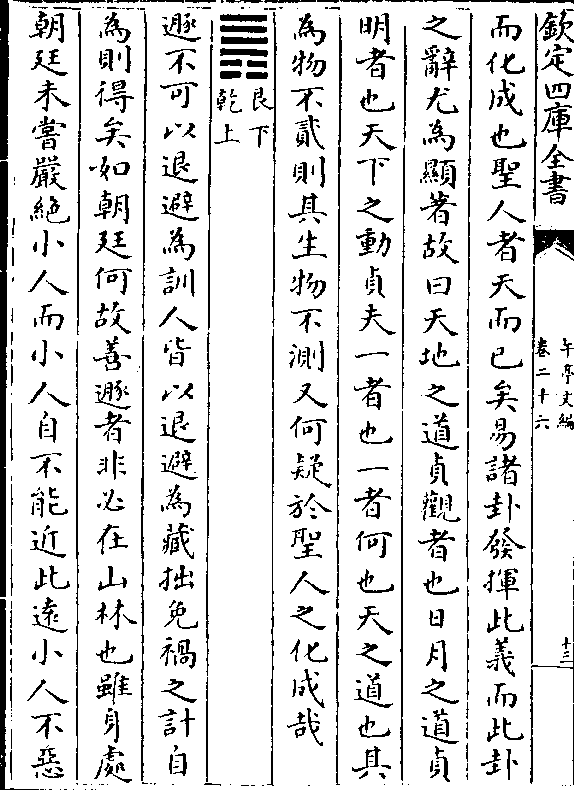 欽定四庫全書
午亭文編
卷二十六
十三
而化成也聖人者天而已矣易諸卦發揮此義而此卦
之辭尤為顯著故曰天地之道貞觀者也日月之道貞
明者也天下之動貞夫一者也一者何也天之道也其
為物不貳則其生物不測又何疑於聖人之化成哉
䷠
艮下
乾上
遯不可以退避為訓人皆以退避為藏拙免禍之計自
為則得矣如朝廷何故善遯者非必在山林也雖身處
朝廷未嘗嚴絶小人而小人自不能近此遠小人不惡